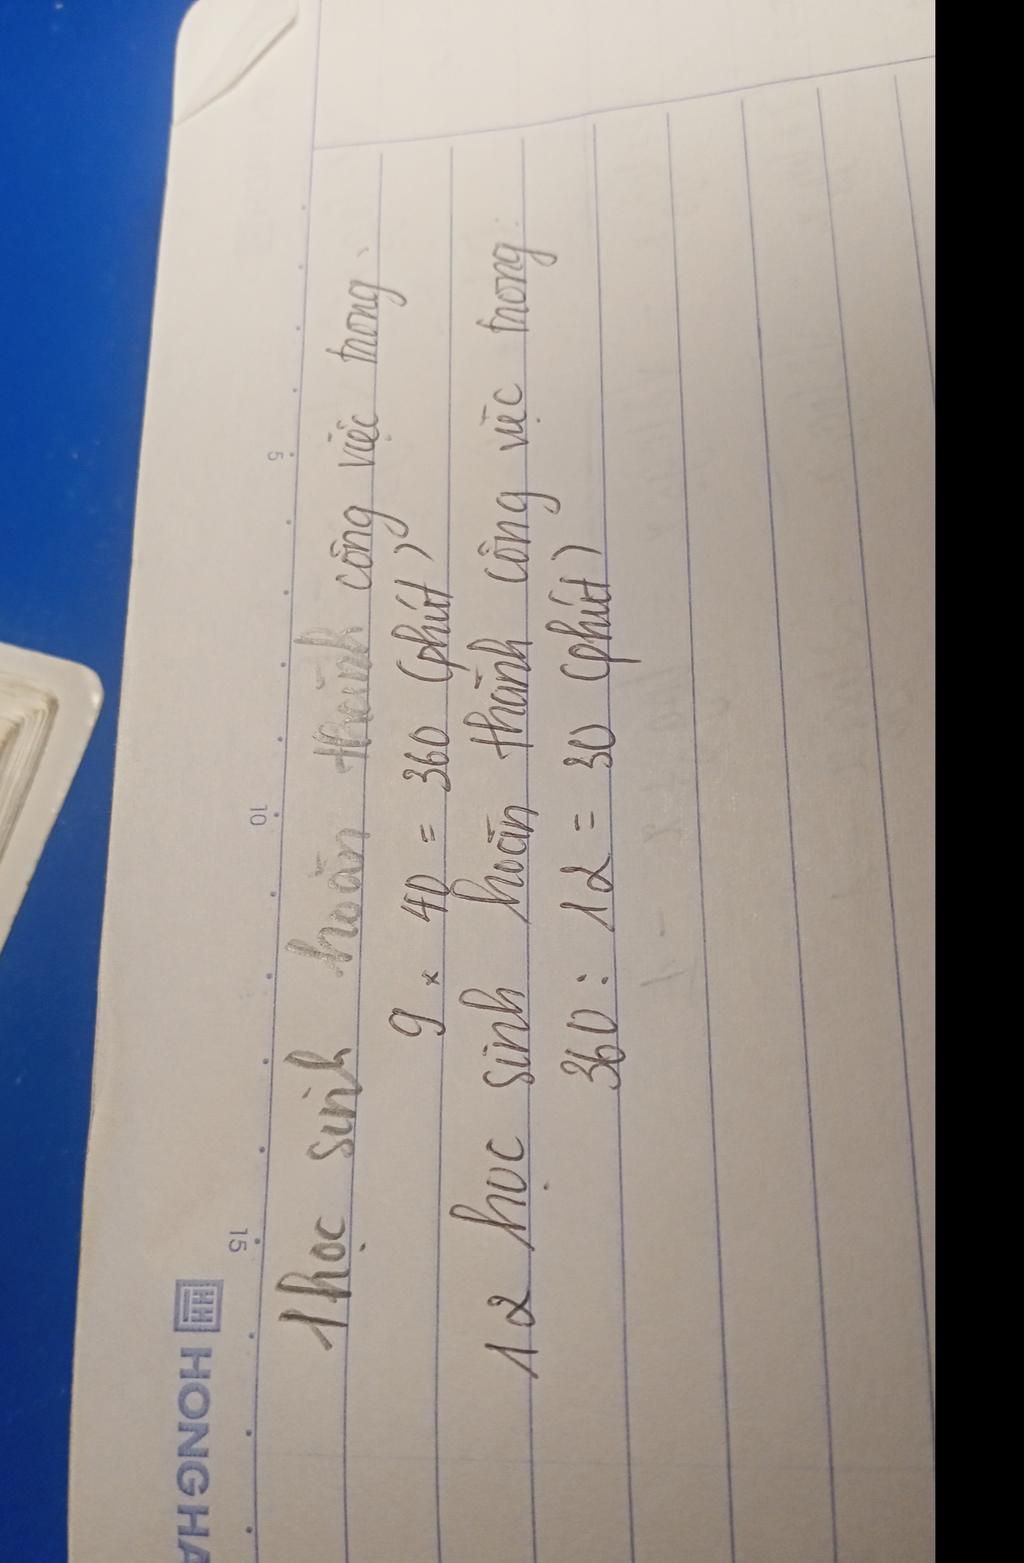 1 học sinh hoàn thành công việc trong
9 × 40 = 360 (phút)
12 học sinh hoàn thành công việc trong
360 : 12 = 30 (phút)
5
10
15
HONG HA